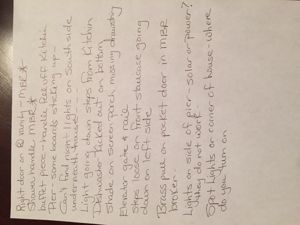 Right door on R vanity - MBR *
Shower handle MBR *
buffet piece - handle fell off - Kitchen
Pier - some boards sticking up
Can't find romex lights on South side
underneath house
Light going down steps from Kitchen
Dishwasher - Kicked out on bottom
Shade on screen porch missing drawstring
Elevator gate & rail
Steps loose on front staircase going
down on left side
Brass pull on pocket door in MBR
broken.
Lights on side of pier - solar or power?
They do not work.
Spot Lights or corner of house - where
do you turn on